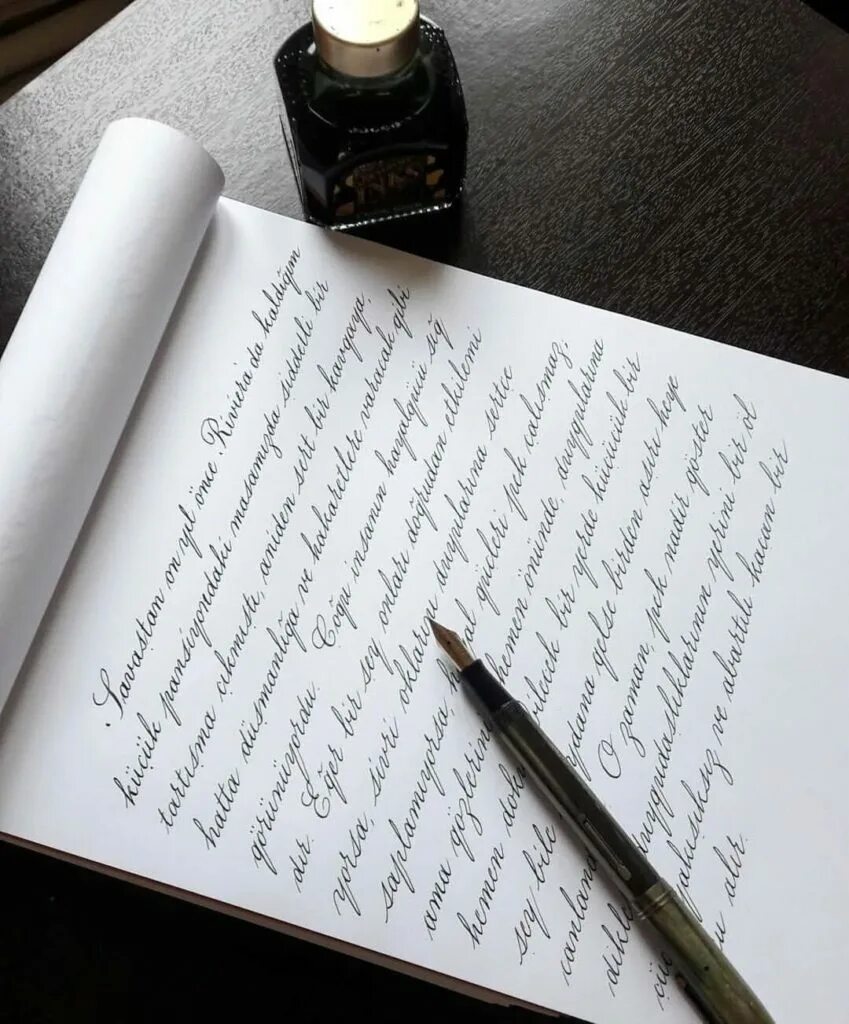 Savaştan on yıl önce Riviera'da kaldığım
küçük pansiyondaki masamızda şiddetli bir
tartışma çıkmıştı, aniden sert bir kavgaya,
hatta düşmanlığa ve hakaretlere varacak gibi
görünüyordu. Çoğu insanın hayalgücü sığ
dır. Eğer bir şey onları doğrudan etkilemi
yorsa, sivri oklarını duygularına sertçe
saplamıyorsa, güçleri pek çalışmaz;
ama gözlerinin hemen önünde, duygularına
hemen bir yerde küçücük bir
şey bile gelse birden aşırı heye
O zaman, pek nadir göster
duygudaşlıklarının yerini bir öl
yakışıksız ve abartılı bir
alır.
INKS